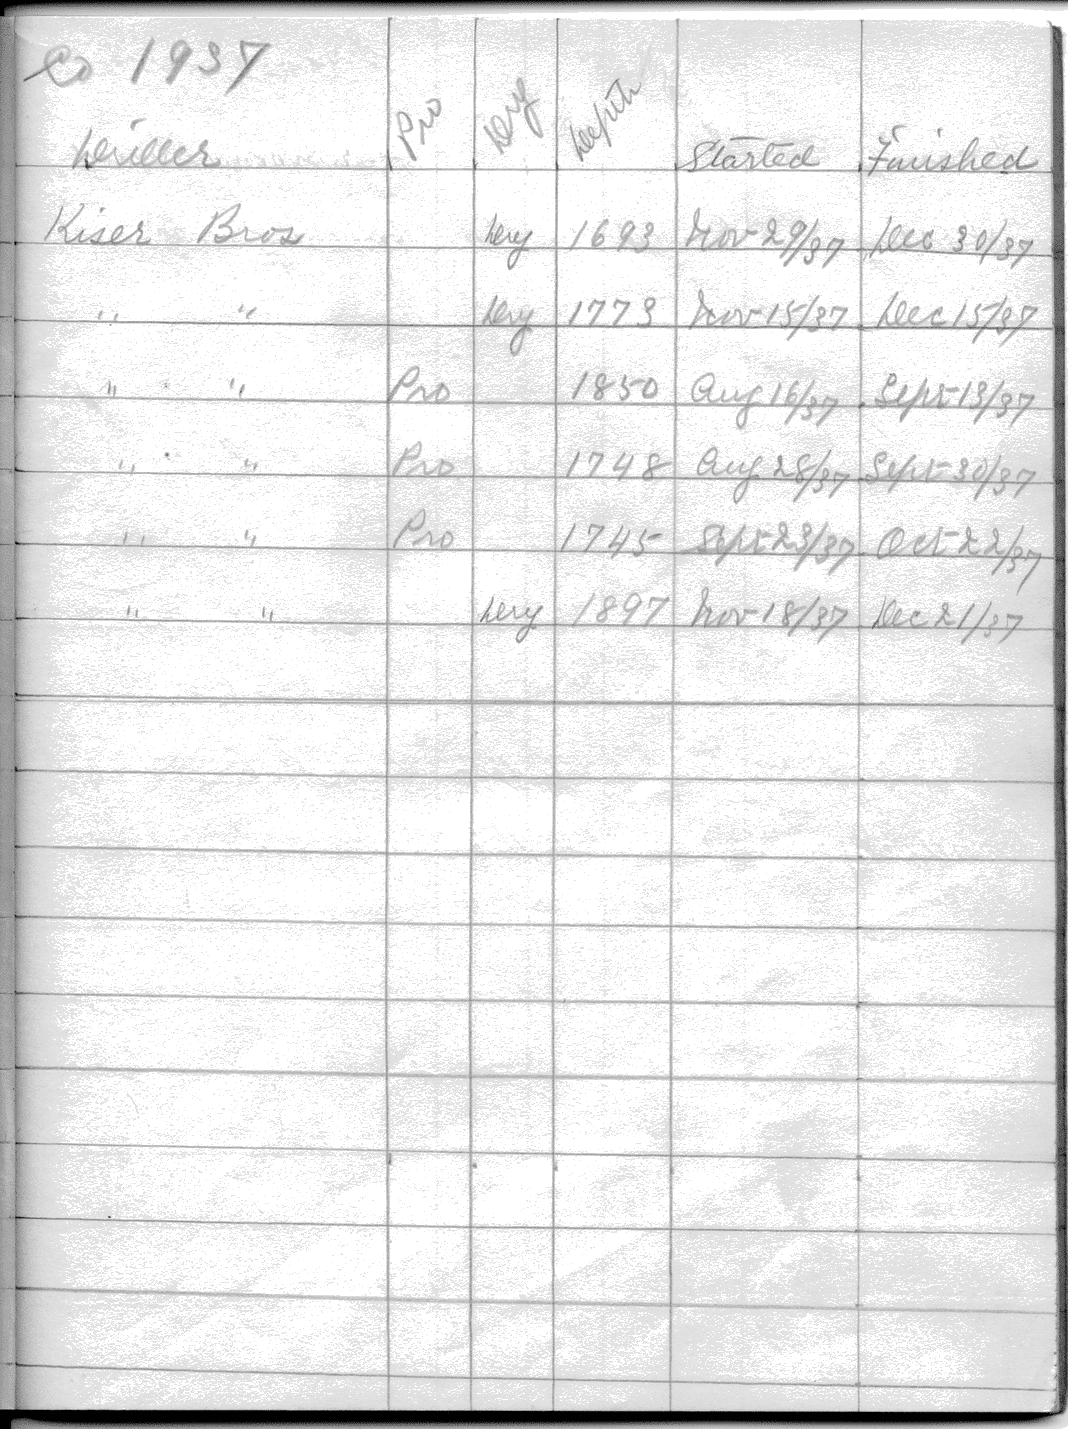 Co 1937
Driller Pro Dry Depth Started Finished
Kiser Bros Dry 1693 Nov 29/37 Dec 30/37
" " Dry 1773 Nov 15/37 Dec 15/37
" " Pro 1850 Aug 16/37 Sept 13/37
" " Pro 1748 Aug 28/37 Sept 30/37
" " Pro 1745 Sept 23/37 Oct 22/37
" " Dry 1897 Nov 18/37 Dec 21/37